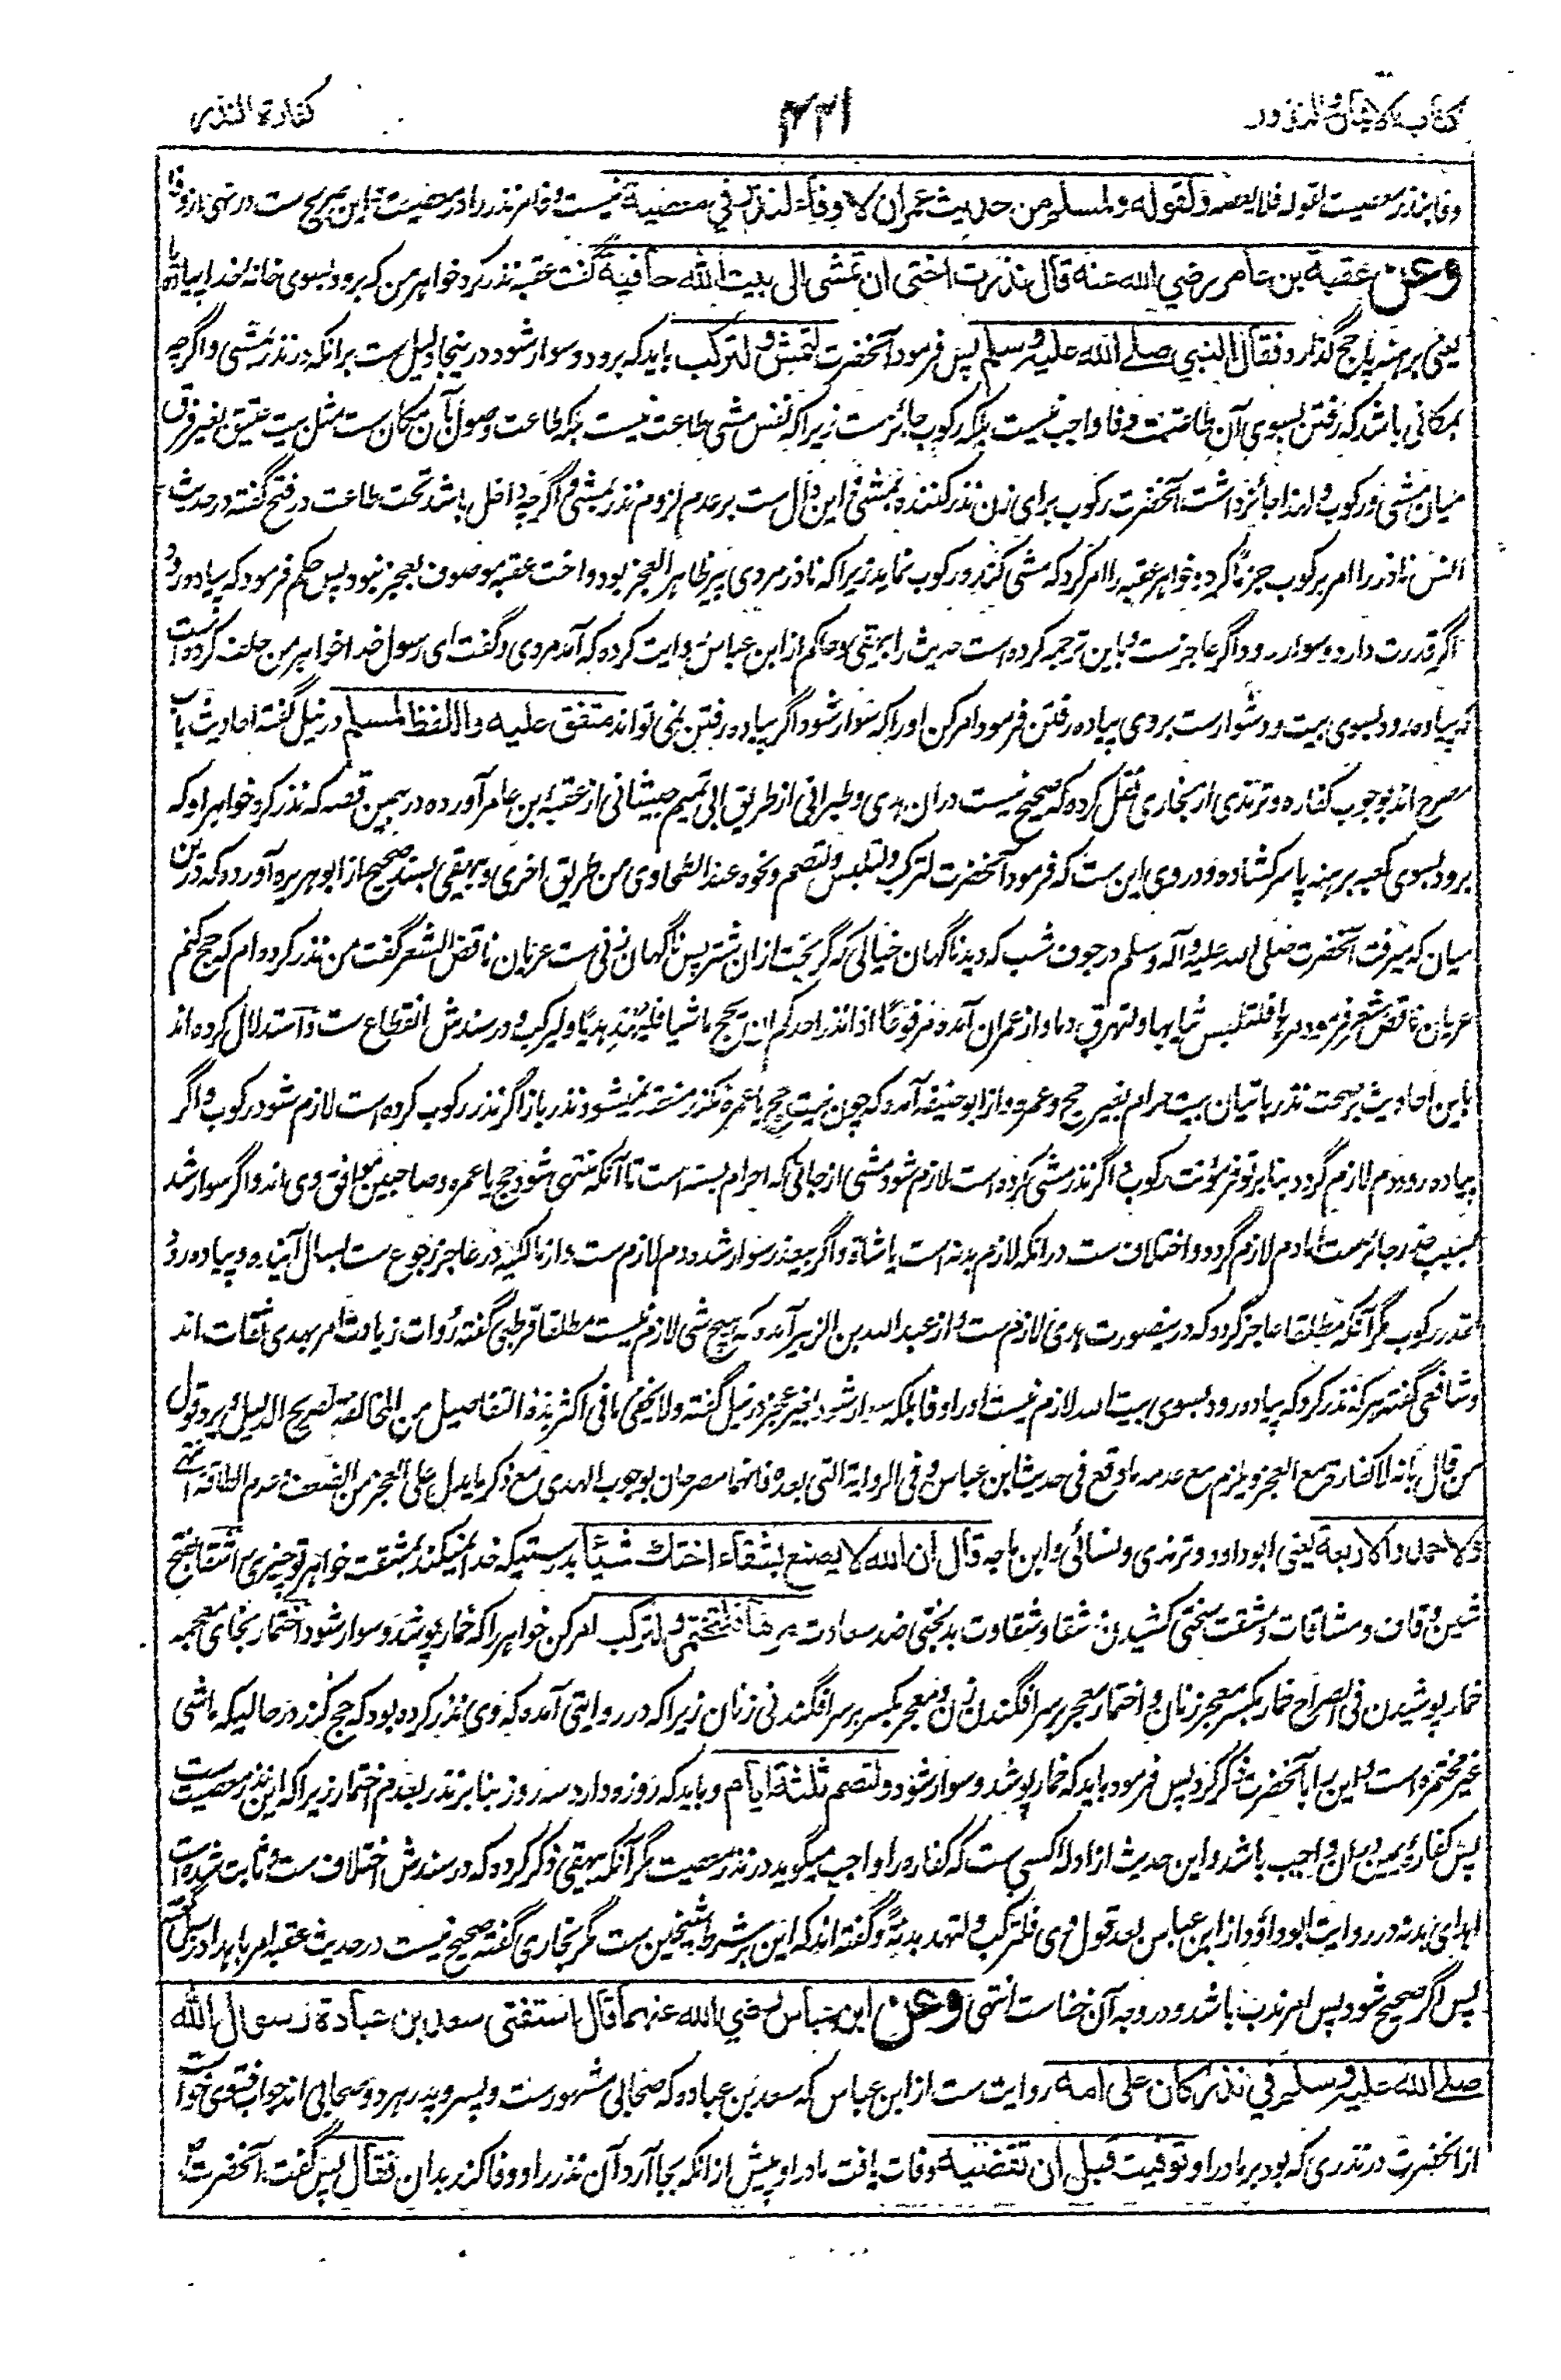 کتاب الایمان والنذور ۴۴۱ کفارة النذر
وفا بنذر معصیت لقوله فلا یعصه ولقوله ولمسلم من حدیث عمران لا وفاء لنذر في معصية نیست وفا مر نذر را در معصیت این صریح ست در نهی از وفا
وعن عقبة بن عامر رضي الله عنه قال نذرت اختی ان تمشی الی بیت الله حافیة گفت عقبه نذر کرد خواهر من که برود بسوی خانهٔ خدا پیاده پا
یعنی برهنه پا حج گذارد فقال النبي صلے الله علیه وسلم پس فرمود آنحضرت لتمش ولترکب باید که برود و سوار شود درینجا دلیل ست برانکه در نذر مشی واگرچه
بمکانی باشد که رفتن بسوی آن طاعتست وفا واجب نیست بلکه رکوب جائز ست زیرا که نفس مشی طاعت نیست بلکه طاعت وصول بآن مکان ست مثل بیت عتیق بغیر فرق
میان مشی ورکوب ولهذا جائز داشت آنحضرت رکوب برای زن نذر کننده بمشی واین دال ست بر عدم لزوم نذر بمشی واگرچه داخل باشد تحت طاعت در فتح گفته در حدیث
انس ناذر را امر برکوب جزماً کرد وخواهر عقبه را امر کرد که مشی کند ورکوب نماید زیرا که ناذر مردی پیر ظاهر العجز بود واخت عقبه موصوف بعجز نبود پس حکم فرمود که پیاده رود
اگر قدرت دارد وسوار رود اگر عاجز ست وباین ترجمه کرده است حدیث را بیهقی وحاکم از ابن عباس روایت کرده که آمد مردی وگفت ای رسول خدا خواهر من حلف کرده است
که پیاده رود بسوی بیت ودشوار ست بر وی پیاده رفتن فرمود امر کن او را که سوار شود اگر پیاده رفتن نمی تواند متفق علیه واللفظ لمسلم در نیل گفته احادیث باب
مصرح اند بوجوب کفاره وترمذی از بخاری نقل کرده که صحیح نیست دران هدی وطبرانی از طریق ابی تمیم جیشانی از عقبه بن عامر آورده در همین قصه که نذر کرد خواهر او که
برود بسوی کعبه برهنه پا سر کشاده ودروی این ست که فرمود آنحضرت لترکب ولتلبس ولتصم ونحوه عند الطحاوی من طریق اخری وبیهقی بسند صحیح از ابو هریره آورده که درین
میان که میرفت آنحضرت صلی الله علیه وآله وسلم در جوف شب که دید ناگهان خیالی که گریخت ازان شتر پس ناگهان زنی ست عریان ناقض الشعر گفت من نذر کرده ام که حج کنم
عریان ناقض شعر فرمود مرها فلتلبس ثیابها ولتهرق دما واز عمران آمده مرفوعا اذا نذر احدکم ان یحج ماشیا فلیهد هدیا ولیرکب ودر سندش انقطاع ست واستدلال کرده اند
باین احادیث بر صحت نذر باتیان بیت حرام بغیر حج وعمره واز ابو حنیفه آمده که چون نیت حج یا عمره نکند منعقد نمیشود نذر باز اگر نذر رکوب کرده است لازم شود رکوب واگر
پیاده رود دم لازم گردد بنا بر توفر مؤنت رکوب واگر نذر مشی کرده است لازم شود مشی از جائیکه احرام بسته است تا آنکه منتهی شود حج یا عمره وصاحبین موافق وی اند واگر سوار شد
بسبب عذر جائز ست اما دم لازم گردد واختلاف ست درانکه لازم بدنه است یا شاة واگر بیعذر سوار شد دم لازم ست واز مالکیه در عاجز رجوع ست بسال آینده وپیاده رود
بقدر رکوب مگر آنکه مطلقا عاجز گردد که درینصورت هدی لازم ست واز عبد الله بن الزبیر آمده که هیچ شی لازم نیست مطلقا قرطبی گفته روات زیادت امر بهدی ثقات اند
وشافعی گفته هر که نذر کرد که پیاده رود بسوی بیت الله لازم نیست او را وفا بلکه سوار شود بغیر عجز در نیل گفته ولا یخفی مافی اکثر هذه التفاصیل من المخالفة لصریح الدلیل ویرد قول
من قال بانه لا کفارة مع العجز ویلزم مع عدمه ما وقع فی حدیث ابن عباس وفی الروایة التی بعده فانهما مصرحان بوجوب الهدی مع ذکر ما یدل علی العجز من الضعف وعدم الطاقة انتهی
ولاحمد والاربعة یعنی ابو داود وترمذی ونسائی وابن ماجه قال ان الله لا یصنع بشقاء اختك شیئا بدرستیکه خدا نمیکند بمشقت خواهر تو چیزی را شقا بفتح
شین وقاف ومشاقات ومشقت سختی کشیدن شقا وشقاوت بدبختی ضد سعادت مرها فلتختمر ولترکب امر کن خواهر را که خمار پوشد وسوار شود اختمار بخای معجمه
خمار پوشیدن فی الصراح خمار بکسر معجر زنان واختمار معجر بر سر افگندن زن ومعجر بکسر بر سر افگندنی زنان زیرا که در روایتی آمده که وی نذر کرده بود که حج کند در حالیکه ماشی
غیر مختمره است واین را بآنحضرت ذکر کرد پس فرمود باید که خمار پوشد وسوار شود ولتصم ثلثة ایام وباید که روزه دارد سه روز بنا بر نذر بعدم اختمار زیرا که این نذر معصیت ست
پس کفارهٔ یمین دران واجب باشد واین حدیث از ادلهٔ کسی ست که کفاره را واجب میگوید در نذر معصیت مگر آنکه بیهقی ذکر کرده که در سندش اختلاف ست وثابت شده است
اهدای بدنه در روایت ابو داؤد از ابن عباس بعد قول وی فلترکب ولتهد بدنة وگفته اند که این بر شرط شیخین ست مگر بخاری گفته صحیح نیست در حدیث عقبه امر باهدا
پس اگر صحیح شود پس امر ندب باشد ودر وجه آن خفا ست انتهی وعن ابن عباس رضي الله عنهما قال استفتی سعد بن عبادة رسول الله
صلے الله علیه وسلم في نذر کان علی امه روایت ست از ابن عباس که سعد بن عباده که صحابی مشهور ست وپسر وپدر هر دو صحابی اند جواب فتوی خواست
از آنحضرت در نذری که بود بر مادر او توفیت قبل ان تقضیه وفات یافت مادر او پیش ازانکه بجا آرد آن نذر را ووفا کند بدان فقال پس گفت آنحضرت